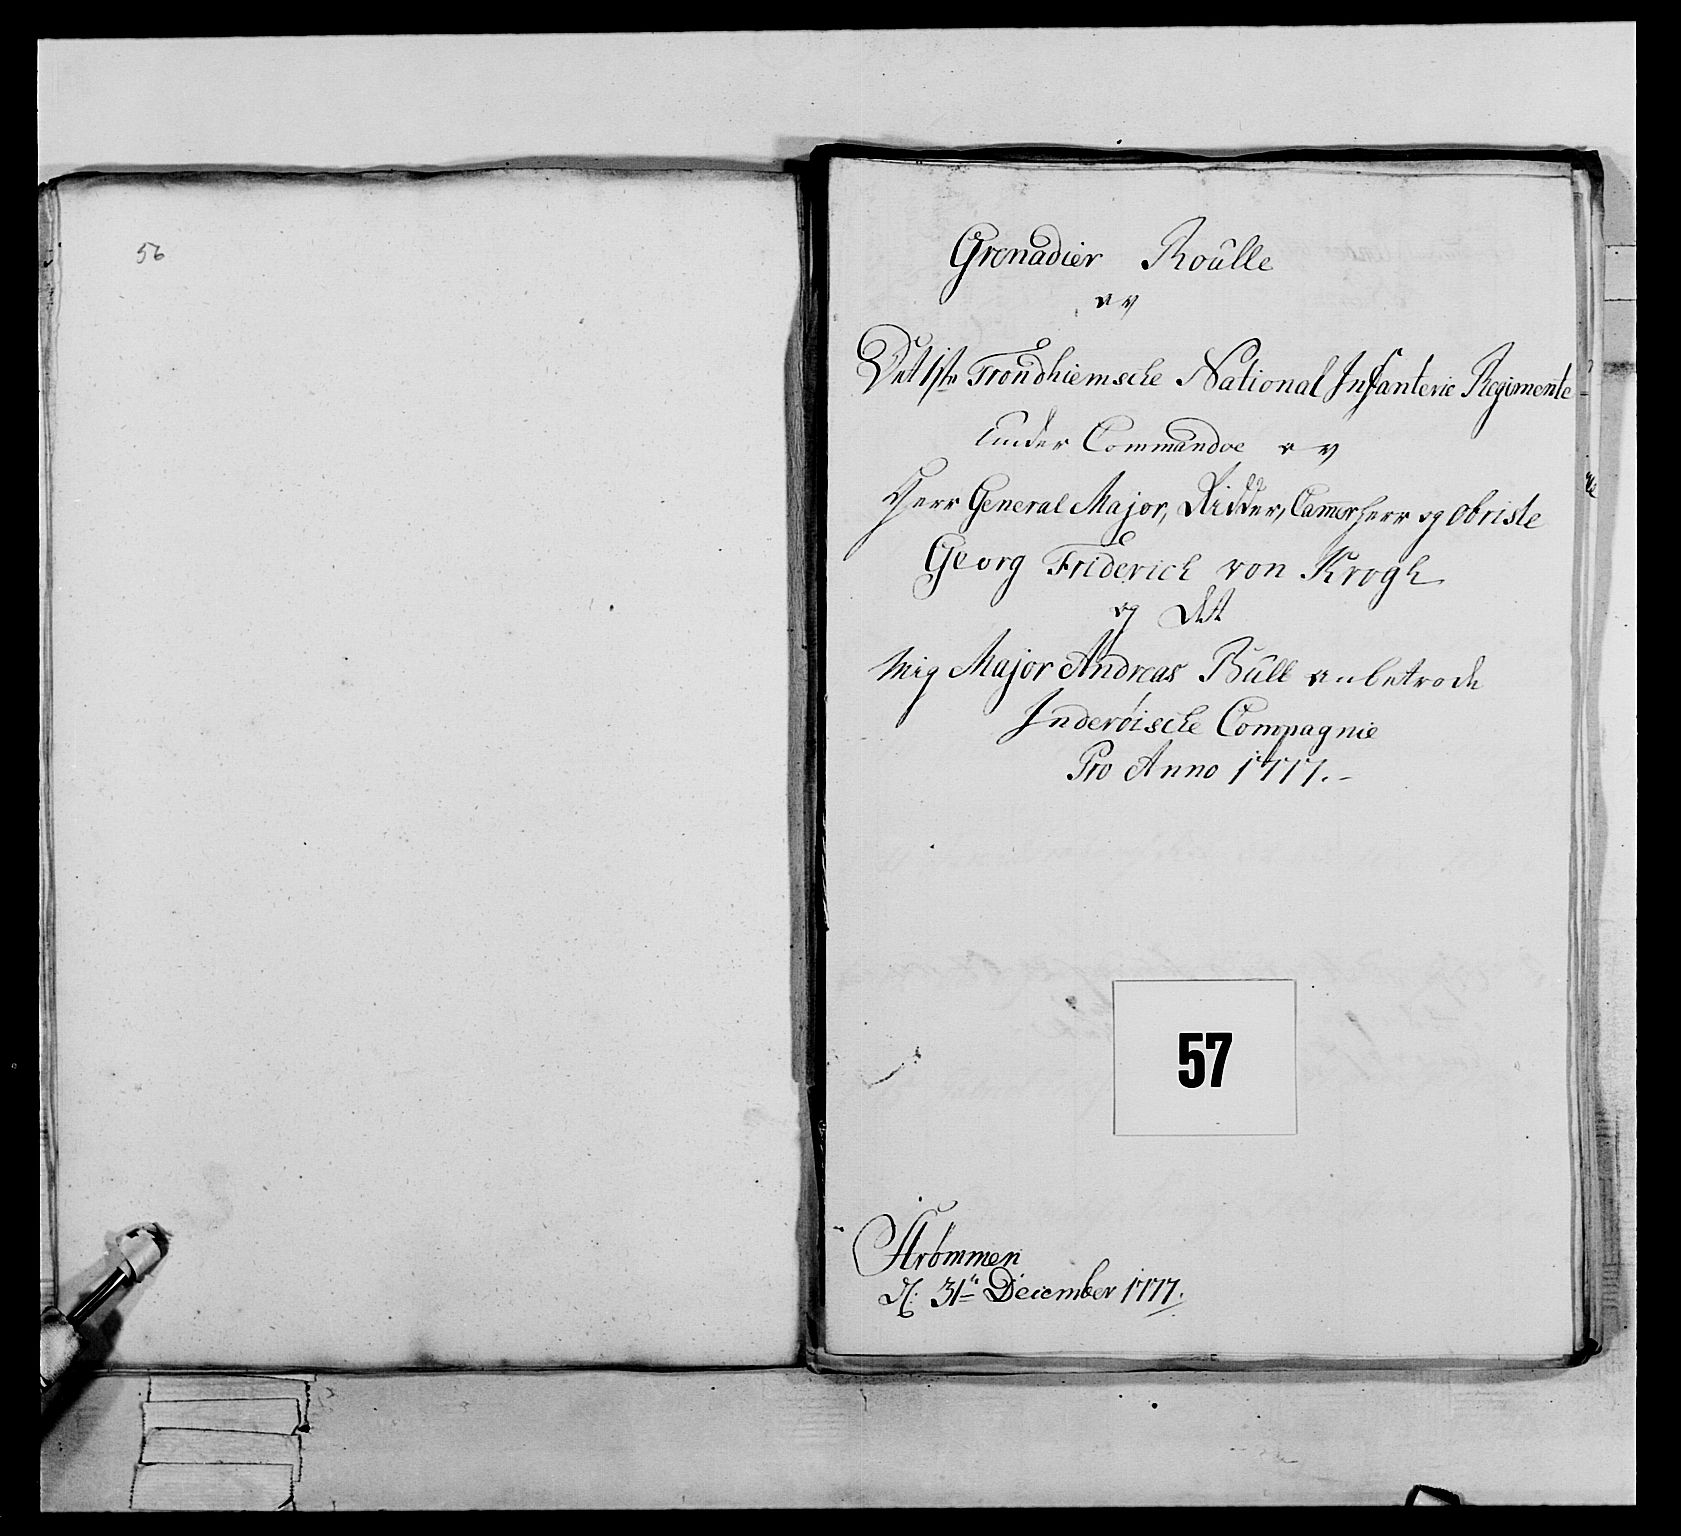 56
Grenadier Roûlle
av
Det 1ste Trondhiemsche National Infanterie Regimente
under Commandoe av
Herr General Major, Ridder, Cammerherr og Obriste
Georg Friderich von Krogh
og det
Mig Major Andreas Bûll anbetrode
Inderöische Compagnie
Pro Anno 1777.-
57
Strömmen
d: 31te December 1777.